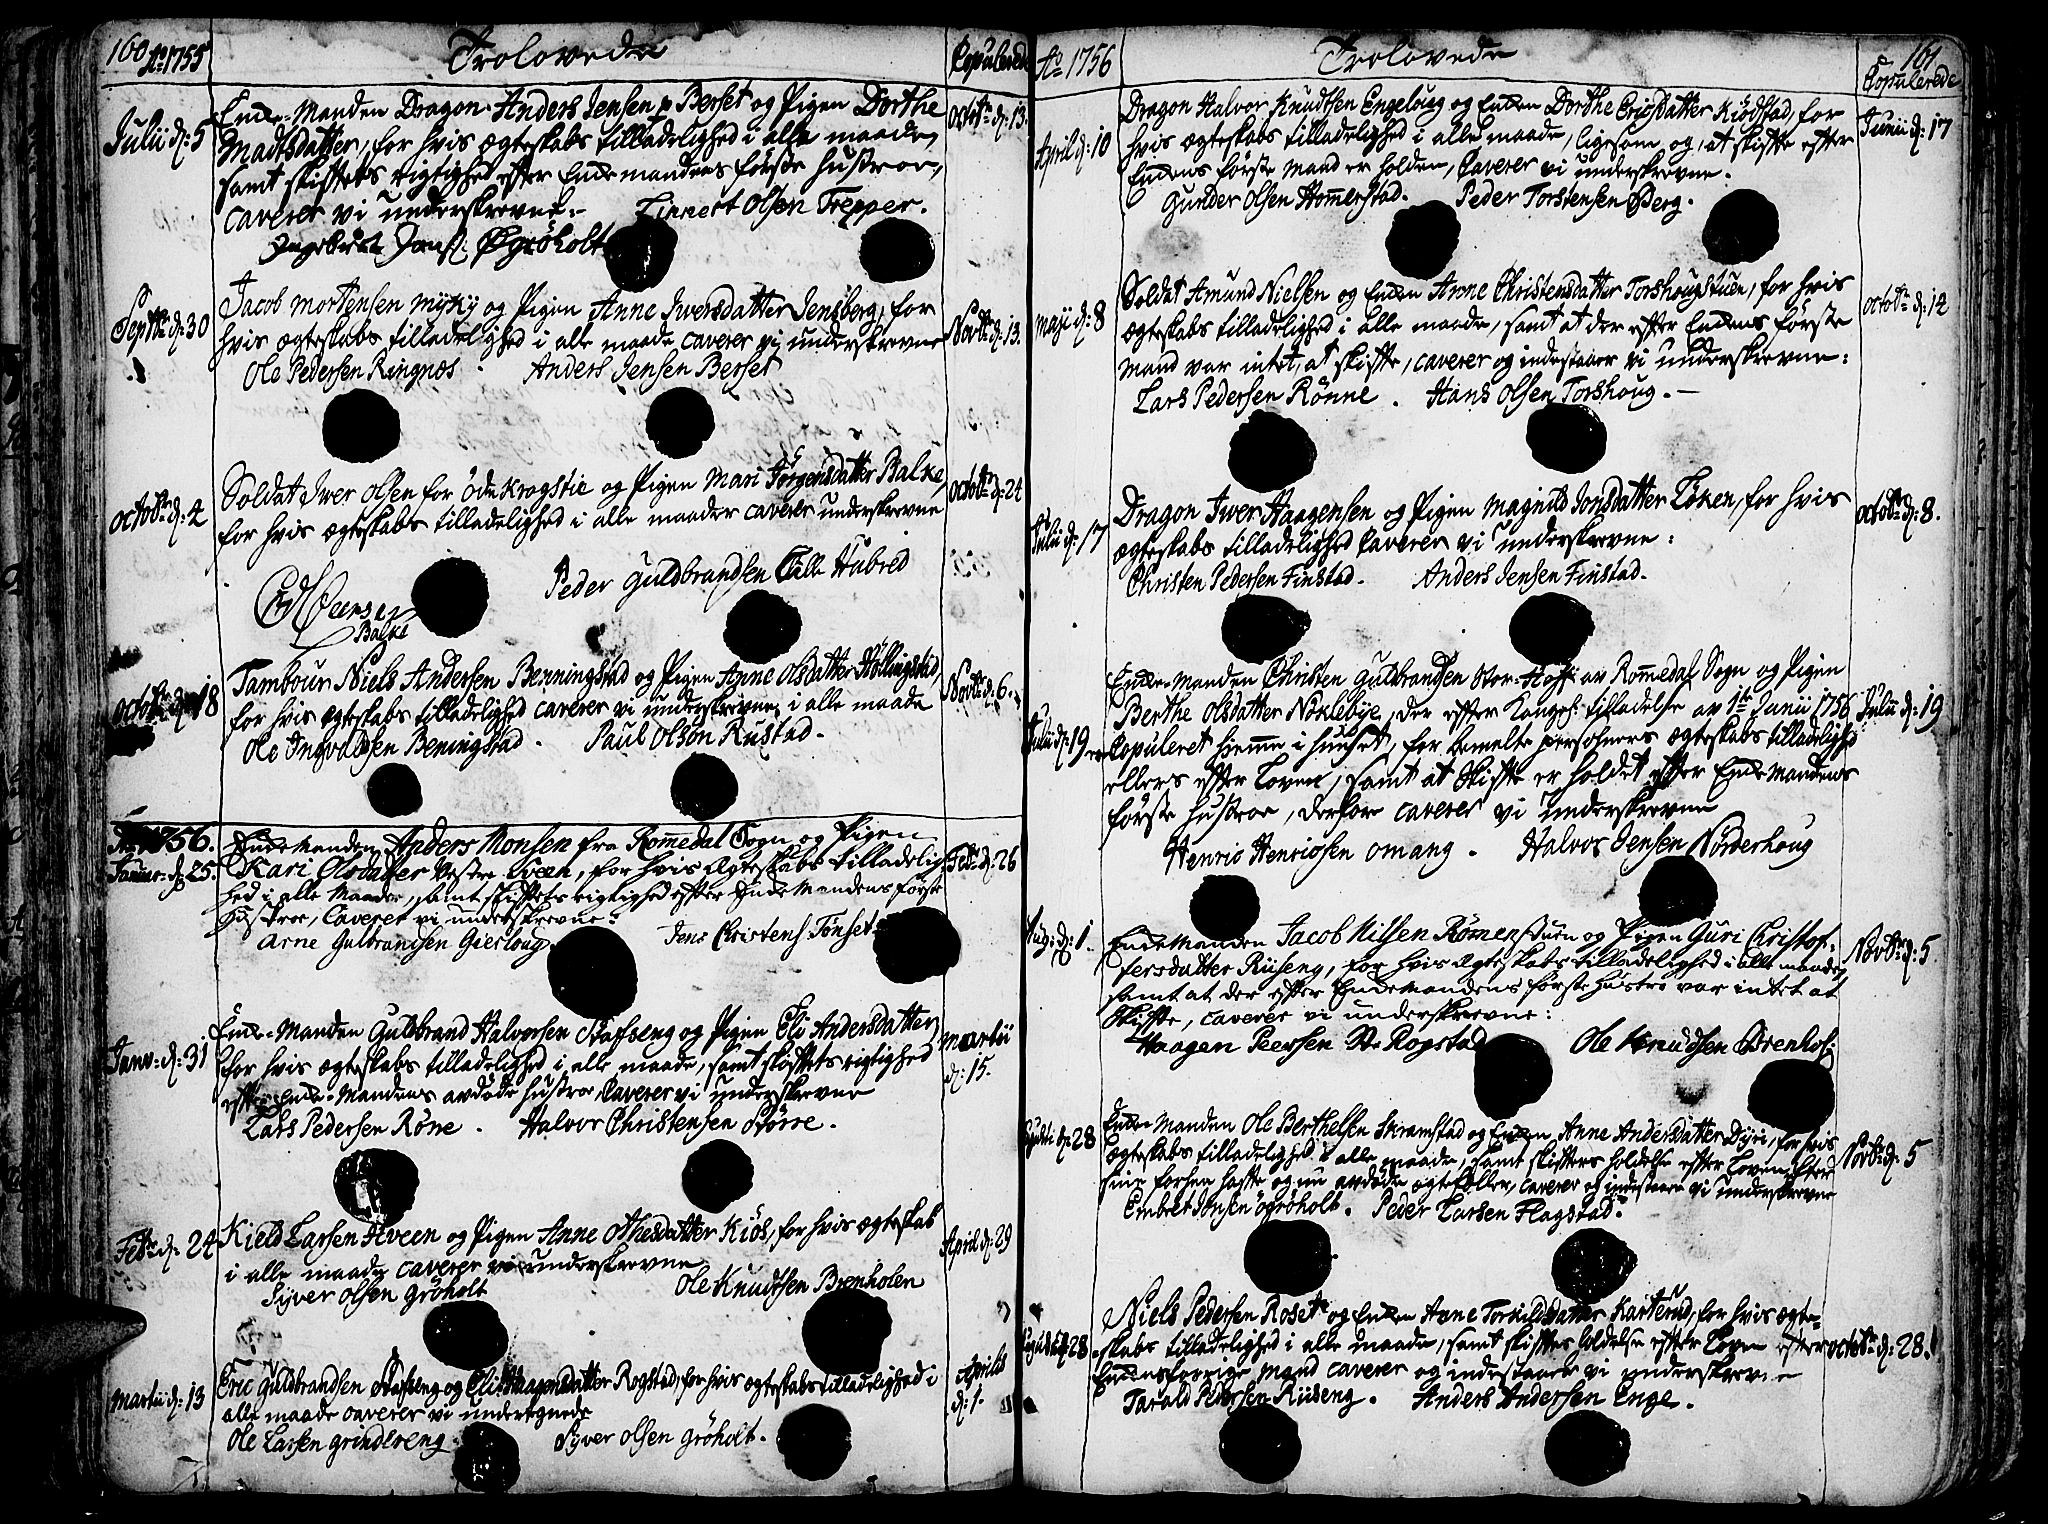 160 Ao 1755 Trolovede Copulerede
Julii d: 5
Enke-Manden Dragon Anders Jensen Berset og Pigen Dorthe
Madtsdatter, for hvis ægteskabs tilladelighed i alle maade,
samt skiftets rigtighed efter Enkemandens første hustroe,
caverer vi underskrevne.
Linnert Olsen Trepper.
Ingebret Jons: Øgrøholt
Octobr d: 13.
Septbr d: 30
Jacob Mortensen Myhy og Pigen Anne Iversdatter Jensberg, for
hvis ægteskabs tilladelighed i alle maade caverer vi underskrevne
Ole Pedersen Ringnes. Anders Jensen Berset
Novbr d: 13.
Octobr d: 4
Soldat Iver Olsen for Øde Krogstie og Pigen Mari Jørgensdatter Balke,
for hvis ægteskabs tilladelighed i alle maader caverer underskrevne
Peder Guldbrandsen Lille Hubred
Balke
Octobr d: 24
Octobr d: 18
Tambour Niels Andersen Benningstad og Pigen Anne Olsdatter Høllingstad,
for hvis ægteskabs tilladelighed caverer vi underskrevne i alle maade
Ole Ingvoldsen Beningstad. Paul Olsøn Rustad.
Novbr d: 6.
Ao 1756.
Januar: d: 25.
Enkemanden Anders Monsen fra Rommedal Sogn og Pigen
Kari Olsdatter Vestre Hveen, for hvis ægteskabs tilladelig-
hed i alle Maader, samt skiftets rigtighed efter Enkemandens første
Hustroe, Caverer vi underskrevne:
Arne Gulbrandsen Gierloug Jens Christens Tønset
Febr: d: 26
Janv: d: 31
Enke-Manden Guldbrand Halvorsen Stafseng og Pigen Eli Andersdatter,
for hvis ægteskabs tilladelighed i alle maade, samt skiftets rigtighed
efter Enke-Mandens avdøde hustroe, Caverer vi underskrevne
Lars Pedersen Røne. Halvor Christensen Børre.
Martii d: 15.
Febr: d: 24
Kield Larsen Hveen og Pigen Anne Othesdatter Kiøs, for hvis ægteskab
i alle maade caverer vi underskrevne
Syver Olsen Grøholt Ole Knudsen Brenholen
April d: 29
Martii d: 13
Eric Guldbrandsen Stafseng og Eli Haagensdatter Rogstad, for hvis ægteskabs tilladelighed i
alle maade caverer vi undertegnede
Ole Larsen Grindereng. Syver Olsen Grøholt.
Aprilis d: 1.
Ao 1756 Trolovede 161 Copulerede
April d: 10
Dragon Halvor Knudtsen Engeloug og Enken Dorthe Erichsdatter Kiødstad, for
hvis ægteskabs tilladelighed i alle maade, ligesom og, at skifte efter
Enkens første Mand er holden, Caverer vi underskrevne.
Gunder Olsen Hommerstad. Peder Torstensen Berg.
Junii d: 17
Maji d: 8
Soldat Amund Nielsen og Enken Anne Christensdatter Torshougstuen, for hvis
ægteskabs tilladelighed i alle maade, samt at der efter Enkens første
Mand var intet, at skifte, caverer og indestaaer vi underskrevne:
Lars Pedersen Rønne. Hans Olsen Torshoug.
Octobr d: 14
Julii d: 17
Dragon Iver Haagensen og Pigen Magnild Jonsdatter Løken, for hvis
ægteskabs tilladelighed Caverer vi underskrevne:
Christen Pedersen Finstad. Anders Jensen Finstad.
Octobr d: 8.
Julii d: 19
Enke-Manden Christen Guldbrandsen Stor-Hoff av Rommedals Sogn og Pigen
Berthe Olsdatter Nøklebye, der efter Kongel: tilladelse av 1te Junii 1756
er Copuleret hiemme i huuset, for bemelte personers ægteskabs tilladelighed
ellers efter Loven, samt at Skifte er holdet efter Enke Mandens
første Hustroe, derfore caverer vi underskrevne
Henric Henricsen Omang. Halvor Jensen Nørderhoug
Julii d: 19
Aug: d: 1.
Enke Manden Jacob Nilsen Rømenstuen og Pigen Guri Christof-
fersdatter Riiseng, for hvis ægteskabs tilladelighed i alle maade,
samt at der efter Enkemandens første Hustro var intet at
Skifte, caverer vi underskrevne:
Haagen Peersen Rogstad Ole Knudsen Brenhol:
Novbr d: 5.
d: 28
Enke-Manden Ole Berthelsen Skramstad og Enken Anne Andersdatter Dyri, for hvis
ægteskabs tilladelighed i alle maade, samt skiftes holdelse efter Loven efter
sine forhen hafte og nu avdøde ægtefæller, caverer og indestaaer vi underskrevne
Embret Jonsen Øgrøholt. Peder Larsen Flagstad.
Novbr d: 5
d: 28
Niels Pedersen Roset og Enken Anne Torkildsdatter Karterud, for hvis ægte-
skabs tilladelighed i alle maade, samt skiftes holdelse efter Loven efter
Enkens forrige mand caverer og indestaaer vi underskrevne
Tarald Pedersen Riiseng. Anders Andersen Enge.
Octobr d: 28.